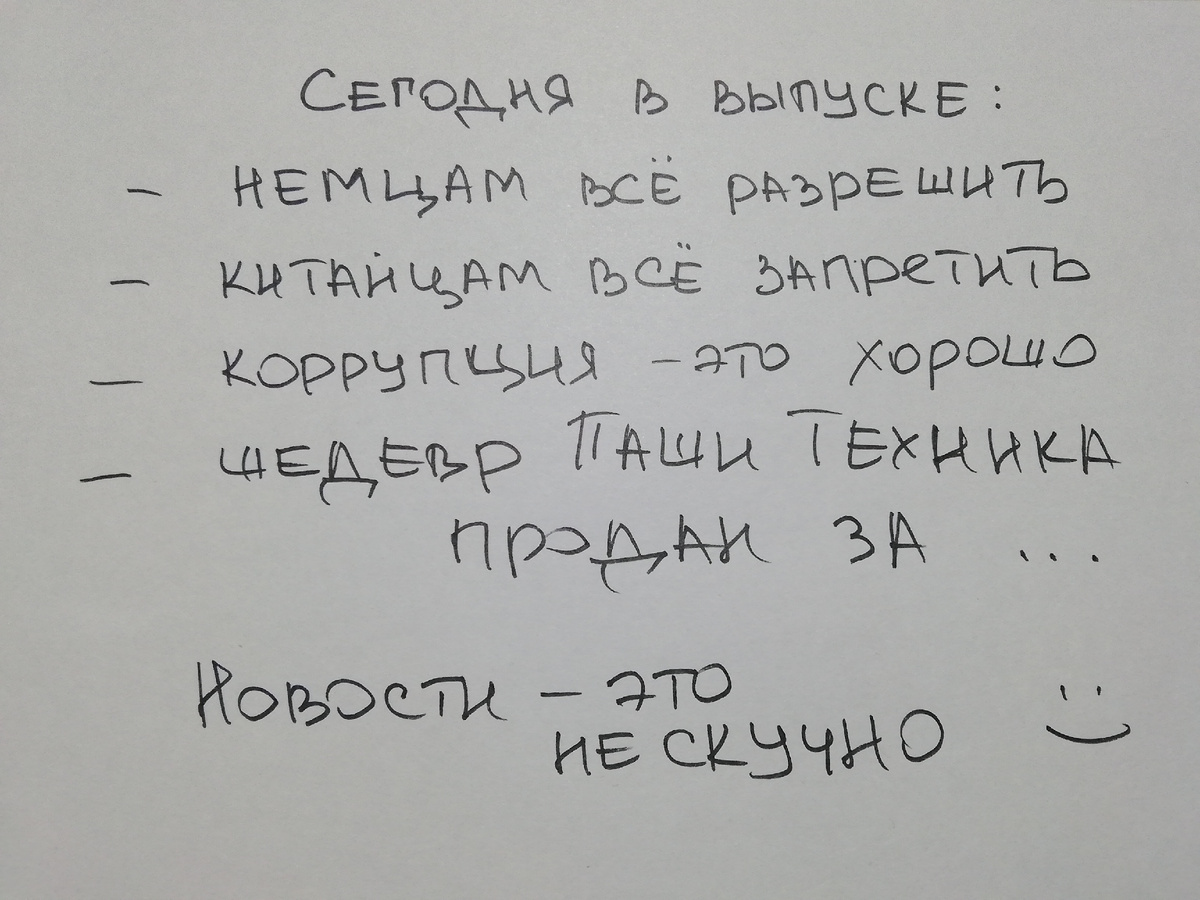 Сегодня в выпуске:
- немцам всё разрешить
- китайцам всё запретить
- коррупция - это хорошо
- шедевр Паши Техника
продан за ...
Новости - это
нескучно :)